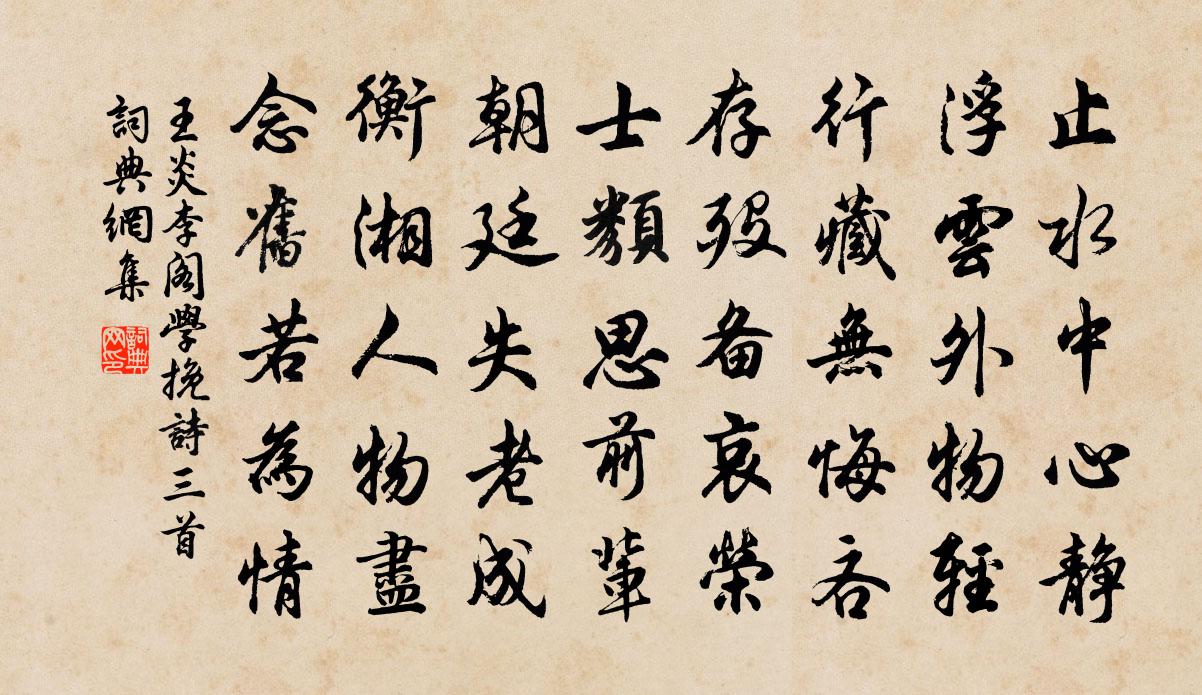 止水中心静
浮雲外物輕
行藏無悔吝
存殁备哀榮
士類思前輩
朝廷失老成
衡湘人物盡
念舊若為情
王炎李阁學挽詩三首
詞典網集
詞典網印